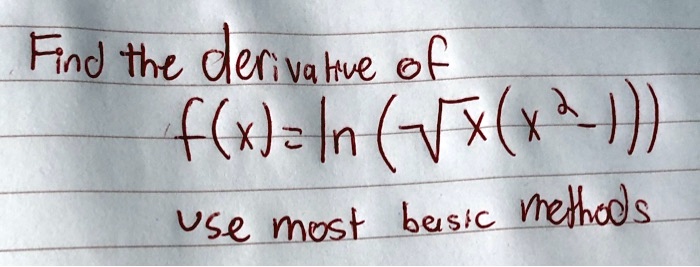 Find the derivative of
f(x)=ln(√x(x²-1))
use most basic methods